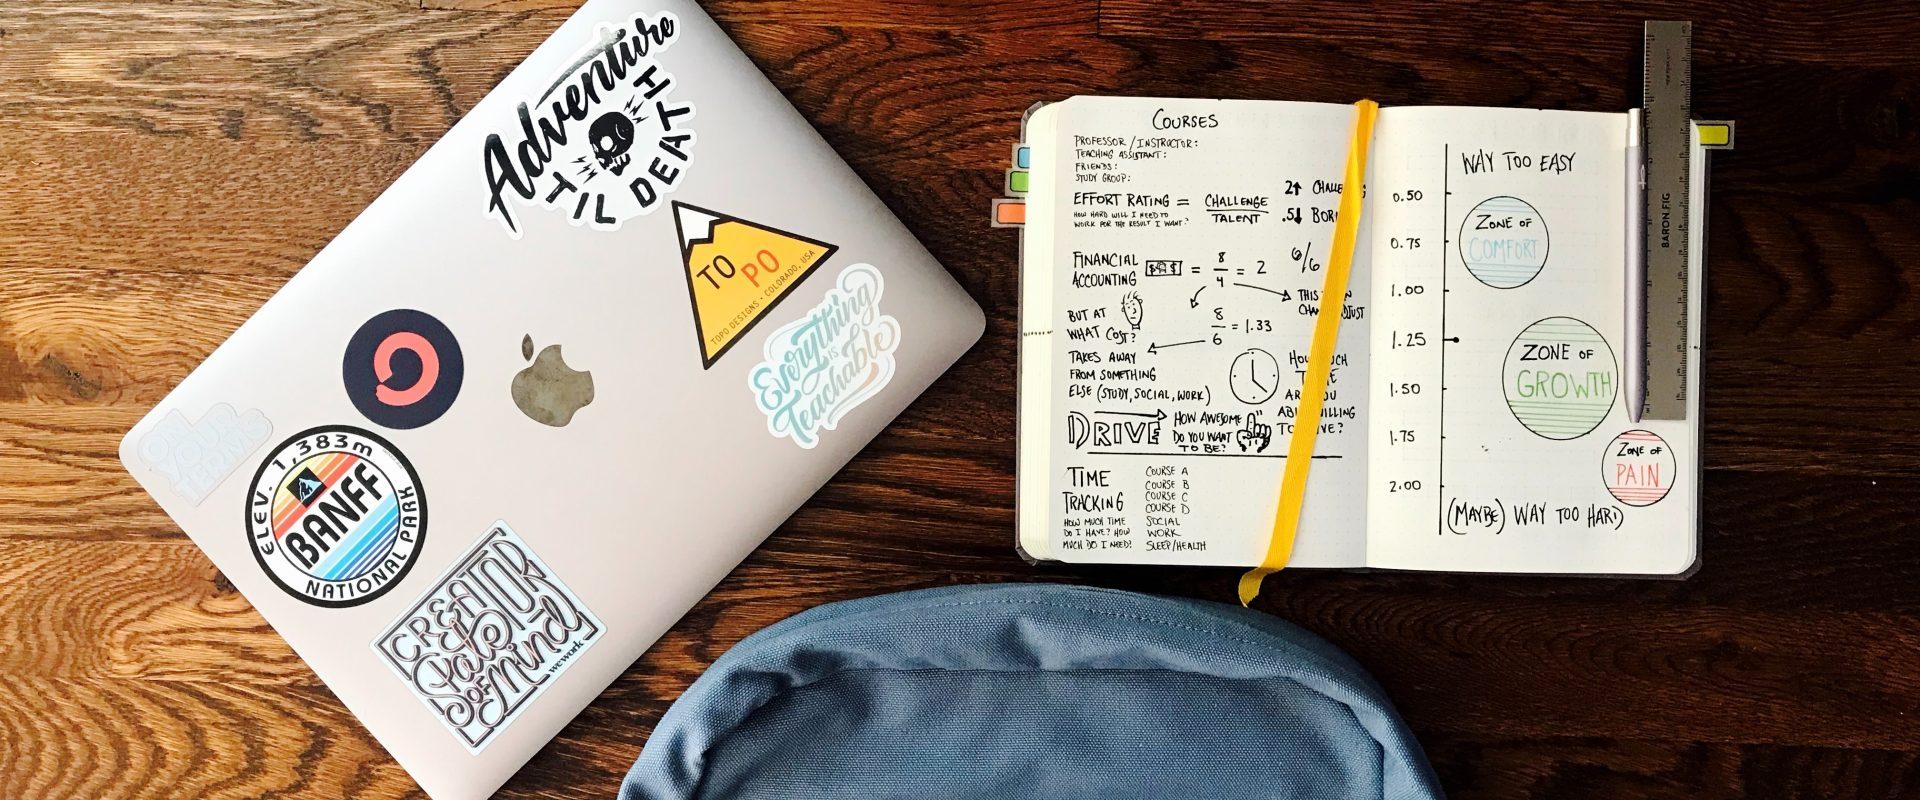 Adventure
TIL DEATH
TOPO
TOPO DESIGNS • COLORADO, USA
Everything
is
Teachable
ON
YOUR
TERMS
ELEV. 1,383m
BANFF
NATIONAL PARK
CREATOR
State
OF
Mind
wework
COURSES
PROFESSOR / INSTRUCTOR:
TEACHING ASSISTANT:
FRIENDS:
STUDY GROUP:
EFFORT RATING = CHALLENGE
TALENT
HOW HARD WILL I NEED TO
WORK FOR THE RESULT I WANT?
2↑
.5↓
FINANCIAL
ACCOUNTING
= 8/4 = 2
6/6
BUT AT
WHAT COST?
8/6 = 1.33
THIS
TAKES AWAY
FROM SOMETHING
ELSE (STUDY, SOCIAL, WORK)
ARE YOU
DRIVE
HOW AWESOME
DO YOU WANT
TO BE?
TIME
TRACKING
HOW MUCH TIME
DO I HAVE? HOW
MUCH DO I NEED?
COURSE A
COURSE B
COURSE C
COURSE D
SOCIAL
WORK
SLEEP/HEALTH
WAY TOO EASY
0.50
ZONE OF
COMFORT
0.75
1.00
1.25
ZONE OF
GROWTH
1.50
1.75
ZONE OF
PAIN
2.00
(MAYBE) WAY TOO HARD
BARON FIG